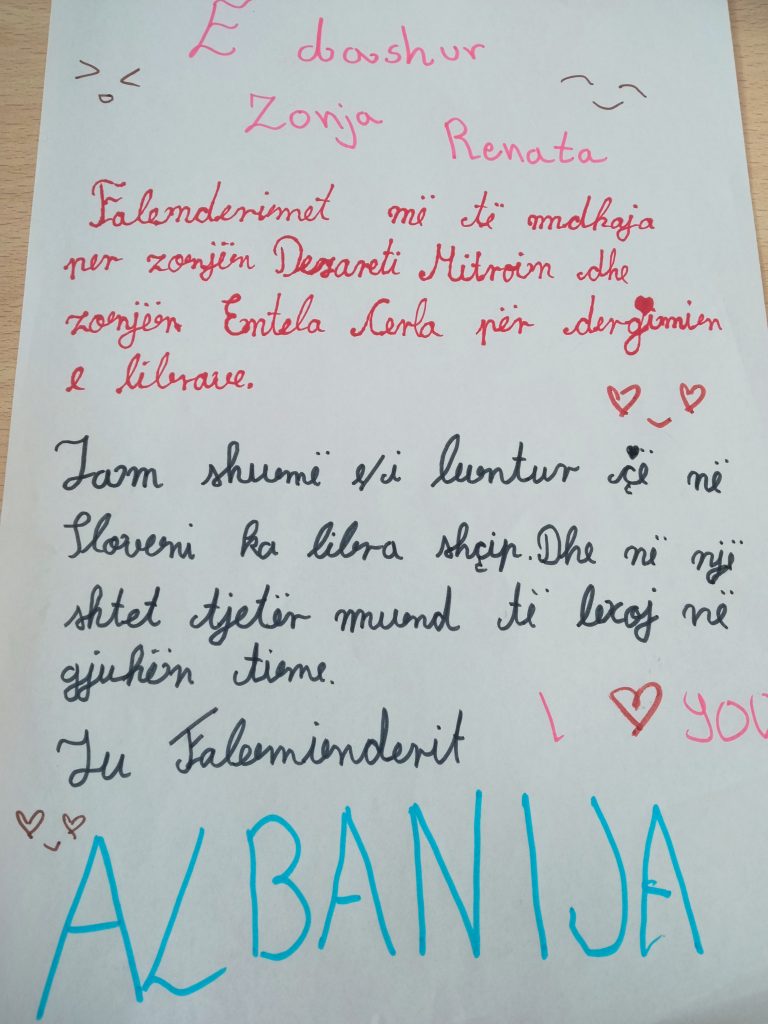 E dashur
Zonja Renata
Falenderimet më të mdhaja
per zonjën Dezareti Mitroin dhe
zonjën Entela Cerla për dergimien
e librave.
Jam shumë e/i luntur çë në
Sloveni ka libra shçip. Dhe në një
shtet tjetër mund të lexoj në
gjuhën tieme.
I ♥ YOU
Ju Falemienderit
ALBANIJA